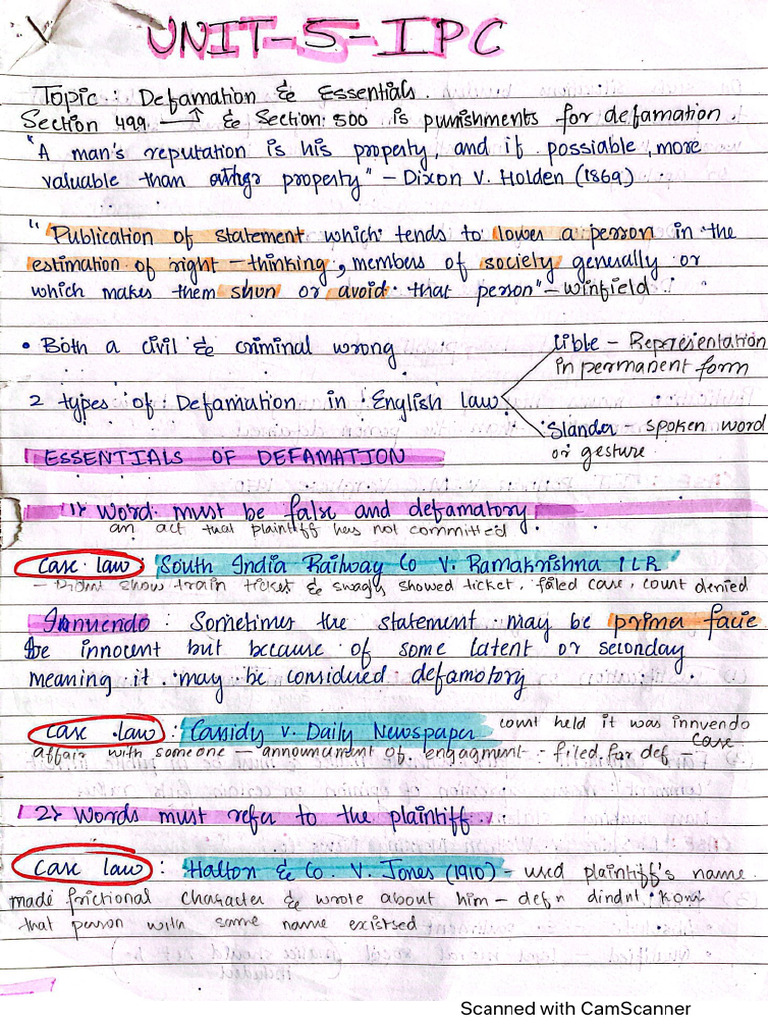 UNIT-5-IPC
Topic: Defamation & Essentials.
Section 499. → & Section: 500 is punishments for defamation.
"A man's reputation is his property, and if possiable, more
valuable than property" - Dixon V. Holden (1869)
"Publication of statement which tends to lower a person in the
estimation of right-thinking, members of society generally or
which makes them shun or avoid that person" - Winfield
• Both a civil & criminal wrong
Lible - Representation
in permanent form
2 types of Defamation in English law
Slander - spoken word
or gesture
ESSENTIALS OF DEFAMATION
1> Word must be false and defamatory.
an act that plaintiff has not committed.
Case law: South India Railway Co V. Ramakrishna ILR
- Didnt show train ticket & showed ticket, filed case, court denied
Innuendo: Sometimes the statement may be prima facie
be innocent but because of some latent or seconday
meaning it may be considered defamotory
case law: Cassidy v. Daily Newspaper court held it was innvendo
affair with someone - announcment of engagment - filed for def - case
2> Words must refer to the plaintiff
case law: Halton & Co. V. Jones (1910) - used plaintiff's name
made frictional character & wrote about him - defn dindnt konw
that person with same name existsed
Scanned with CamScanner